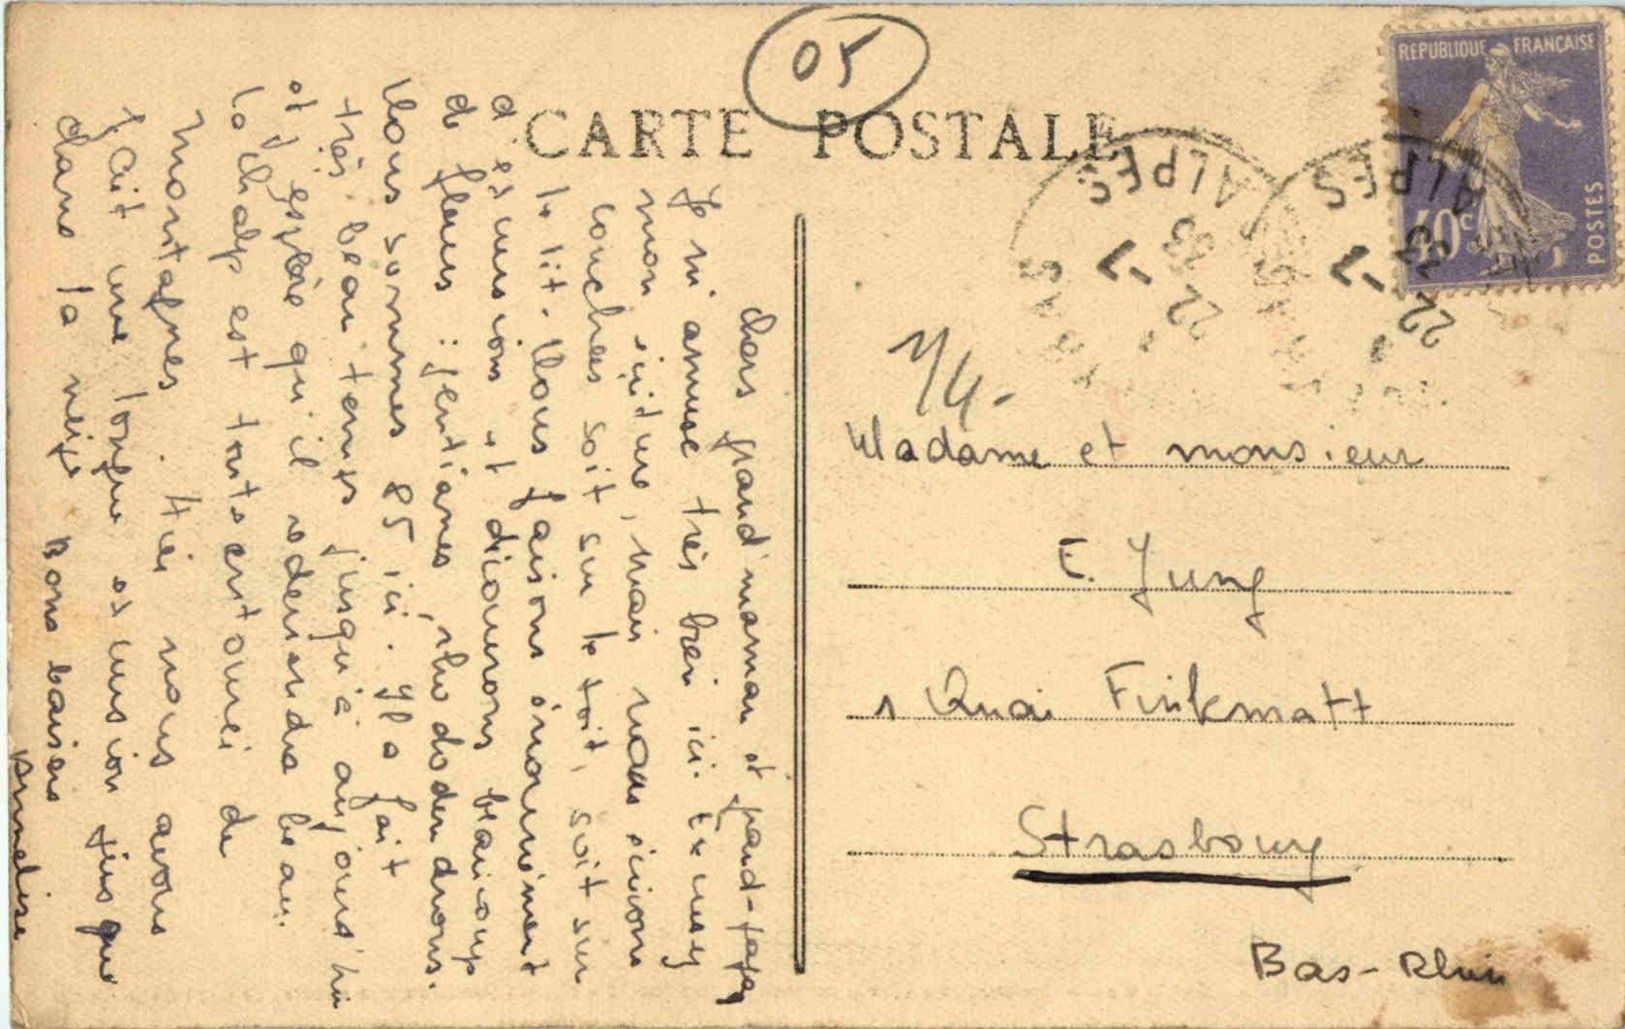 05
CARTE POSTALE
REPUBLIQUE FRANÇAISE
40c
POSTES
ALPES
22 -7
33
ALPES
22 -7
33
1/4-
Madame et monsieur
E. Jung
1 Quai Finkmatt
Strasbourg
Bas-Rhin
chers grand'maman et grand-papa
Je m'amuse très bien ici. Excusez
mon écriture, mais nous écrivons
couchées soit sur le toit, soit sur
le lit. Nous faisons énormément
d'escursions et découvrons beaucoup
de fleurs : gentianes, rhododendrons.
Nous sommes 85 ici. Il a fait
très beau temps jusqu'à aujourd'hui
et j'espère qu'il redeviendra beau.
La chalp est toute entouré de
montagnes. Hier nous avons
fait une longue escursion jusque
dans la neige Bons baisers
Annelise